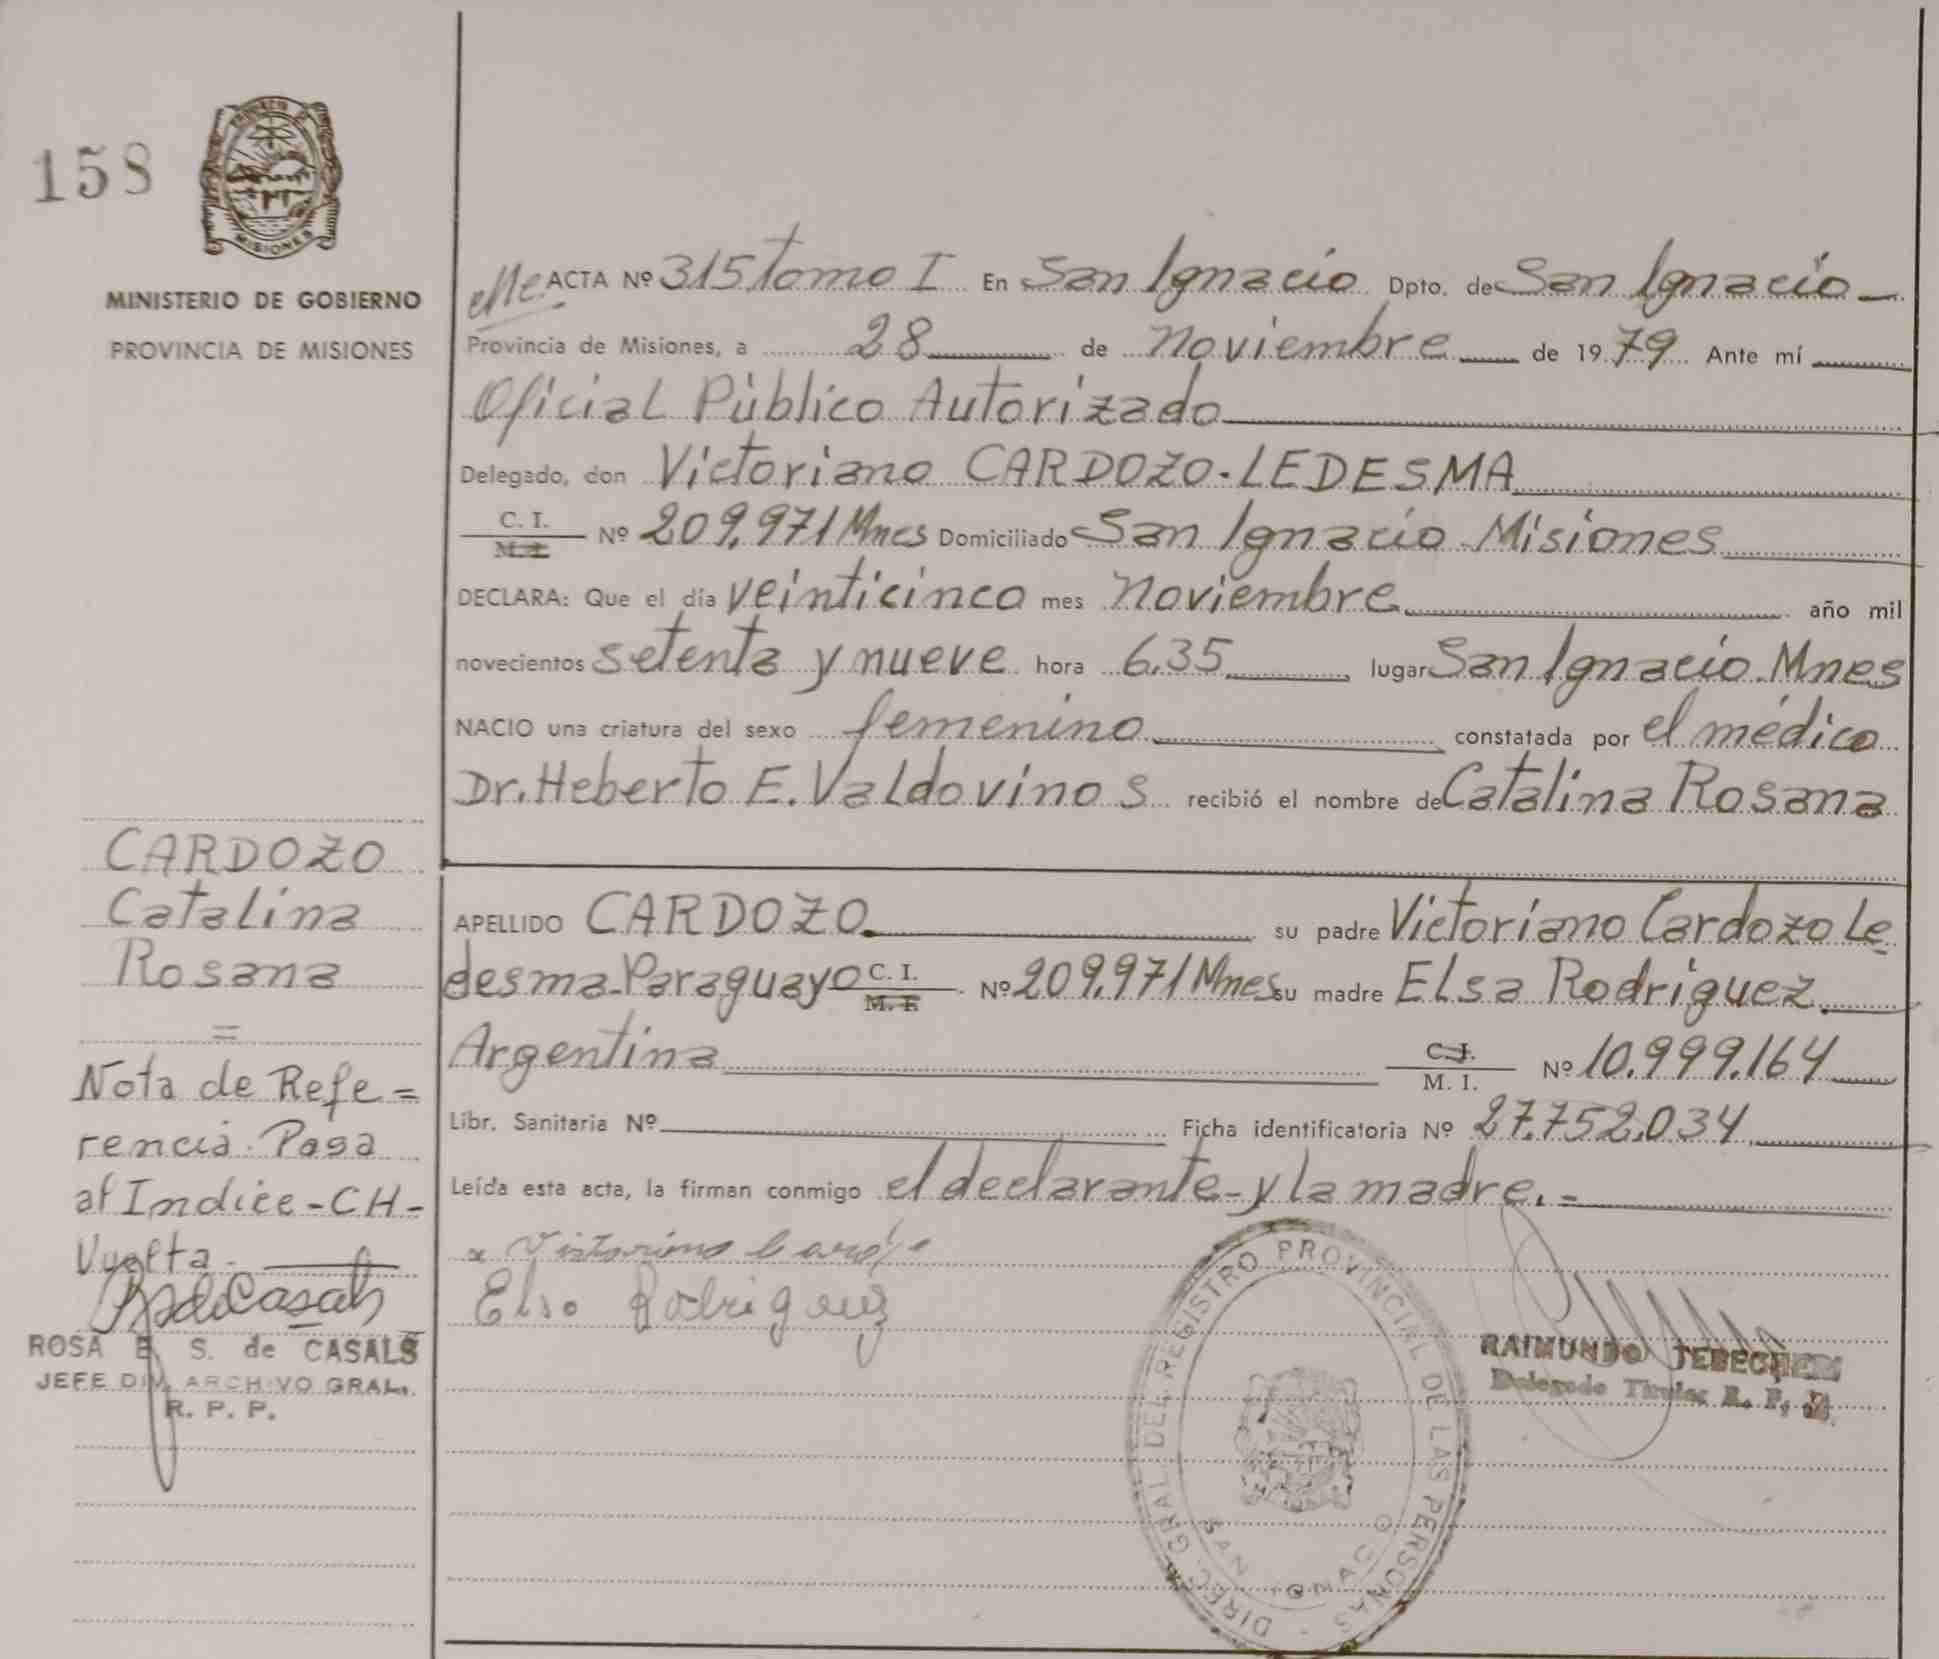 158
PROVINCIA DE
MISIONES
MINISTERIO DE GOBIERNO
PROVINCIA DE MISIONES
CARDOZO
Catalina
Rosana
=
Nota de Refe=
rencia. Pasa
al Indice-CH-
Vuelta.
ROSA E. S. de CASALS
JEFE DIV. ARCHIVO GRAL.
R. P. P.
ACTA Nº 315 tomo I En San Ignacio Dpto. de San Ignacio
Provincia de Misiones, a 28 de noviembre de 1979 Ante mí
Oficial Público Autorizado
Delegado, don Victoriano CARDOZO-LEDESMA
C. I. / M. I. Nº 209.971 Mnes Domiciliado San Ignacio Misiones
DECLARA: Que el día veinticinco mes noviembre año mil
novecientos setenta y nueve hora 6,35 lugar San Ignacio. Mnes
NACIO una criatura del sexo femenino constatada por el médico
Dr. Heberto E. Valdovinos recibió el nombre de Catalina Rosana
APELLIDO CARDOZO su padre Victoriano Cardozo Le
desma-Paraguayo C. I. / M. I. Nº 209.971 Mnes su madre Elsa Rodriguez.
Argentina C. I. / M. I. Nº 10.999.164
Libr. Sanitaria Nº Ficha identificatoria Nº 27.752.034
Leída esta acta, la firman conmigo el declarante-y la madre.-
Elsa Rodriguez
DIREC. GRAL. DEL REGISTRO PROVINCIAL DE LAS PERSONAS
SAN IGNACIO
RAIMUNDO
Delegado Titular R. P. P.